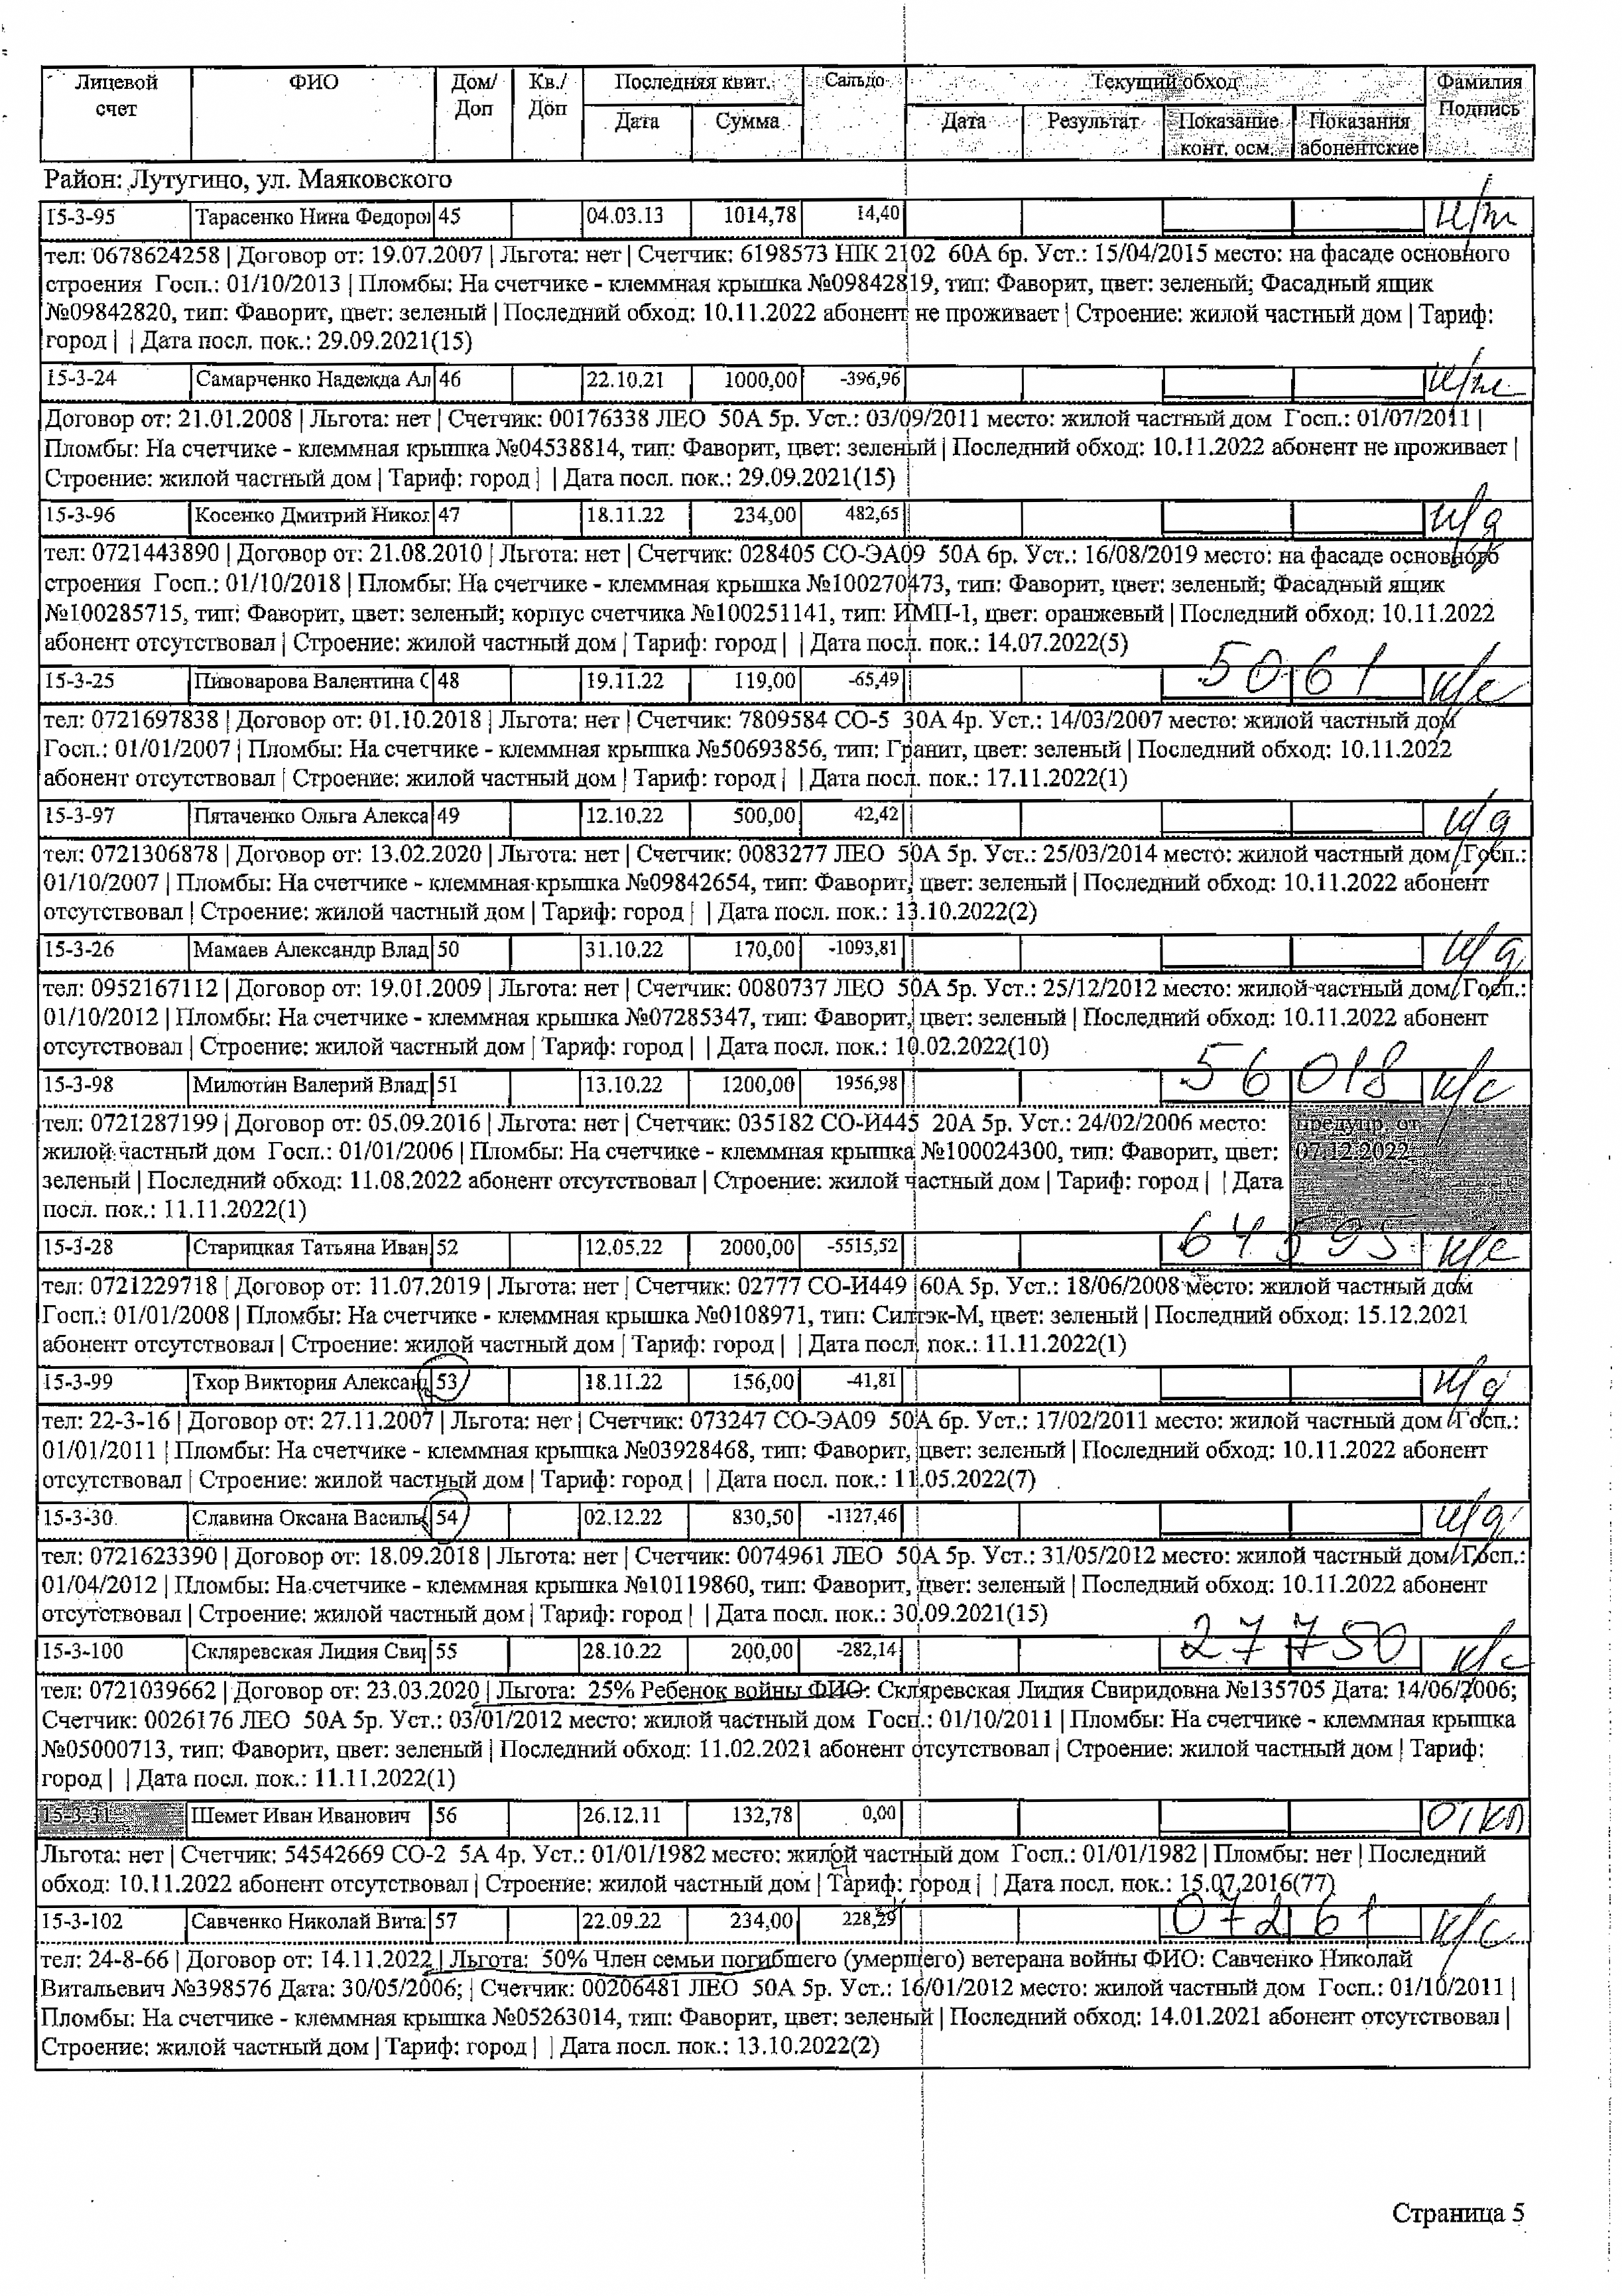 Лицевой счет ФИО Дом/ Доп Кв./ Доп Последняя квит. Сальдо Текущий обход Фамилия Подпись
Дата Сумма Дата Результат Показание конт. осм. Показания абонентские
Район: Лутугино, ул. Маяковского
15-3-95 Тарасенко Нина Федоро 45 04.03.13 1014,78 14,40 н/ж
тел: 0678624258 | Договор от: 19.07.2007 | Льгота: нет | Счетчик: 6198573 НІК 2102 60А 6р. Уст.: 15/04/2015 место: на фасаде основного
строения Госп.: 01/10/2013 | Пломбы: На счетчике - клеммная крышка №09842819, тип: Фаворит, цвет: зеленый; Фасадный ящик
№09842820, тип: Фаворит, цвет: зеленый | Последний обход: 10.11.2022 абонент не проживает | Строение: жилой частный дом | Тариф:
город | | Дата посл. пок.: 29.09.2021(15)
15-3-24 Самарченко Надежда Ал 46 22.10.21 1000,00 -396,96 н/ж
Договор от: 21.01.2008 | Льгота: нет | Счетчик: 00176338 ЛЕО 50А 5р. Уст.: 03/09/2011 место: жилой частный дом Госп.: 01/07/2011 |
Пломбы: На счетчике - клеммная крышка №04538814, тип: Фаворит, цвет: зеленый | Последний обход: 10.11.2022 абонент не проживает |
Строение: жилой частный дом | Тариф: город | | Дата посл. пок.: 29.09.2021(15)
15-3-96 Косенко Дмитрий Никол 47 18.11.22 234,00 482,65 н/д
тел: 0721443890 | Договор от: 21.08.2010 | Льгота: нет | Счетчик: 028405 СО-ЭА09 50А 6р. Уст.: 16/08/2019 место: на фасаде основного
строения Госп.: 01/10/2018 | Пломбы: На счетчике - клеммная крышка №100270473, тип: Фаворит, цвет: зеленый; Фасадный ящик
№100285715, тип: Фаворит, цвет: зеленый; корпус счетчика №100251141, тип: ИМП-1, цвет: оранжевый | Последний обход: 10.11.2022
абонент отсутствовал | Строение: жилой частный дом | Тариф: город | | Дата посл. пок.: 14.07.2022(5)
15-3-25 Пивоварова Валентина С 48 19.11.22 119,00 -65,49 5061 к/с
тел: 0721697838 | Договор от: 01.10.2018 | Льгота: нет | Счетчик: 7809584 СО-5 30А 4р. Уст.: 14/03/2007 место: жилой частный дом
Госп.: 01/01/2007 | Пломбы: На счетчике - клеммная крышка №50693856, тип: Гранит, цвет: зеленый | Последний обход: 10.11.2022
абонент отсутствовал | Строение: жилой частный дом | Тариф: город | | Дата посл. пок.: 17.11.2022(1)
15-3-97 Пятаченко Ольга Алекса 49 12.10.22 500,00 42,42 н/д
тел: 0721306878 | Договор от: 13.02.2020 | Льгота: нет | Счетчик: 0083277 ЛЕО 50А 5р. Уст.: 25/03/2014 место: жилой частный дом Госп.:
01/10/2007 | Пломбы: На счетчике - клеммная крышка №09842654, тип: Фаворит, цвет: зеленый | Последний обход: 10.11.2022 абонент
отсутствовал | Строение: жилой частный дом | Тариф: город | | Дата посл. пок.: 13.10.2022(2)
15-3-26 Мамаев Александр Влад 50 31.10.22 170,00 -1093,81 н/д
тел: 0952167112 | Договор от: 19.01.2009 | Льгота: нет | Счетчик: 0080737 ЛЕО 50А 5р. Уст.: 25/12/2012 место: жилой частный дом Госп.:
01/10/2012 | Пломбы: На счетчике - клеммная крышка №07285347, тип: Фаворит, цвет: зеленый | Последний обход: 10.11.2022 абонент
отсутствовал | Строение: жилой частный дом | Тариф: город | | Дата посл. пок.: 10.02.2022(10)
15-3-98 Милютин Валерий Влад 51 13.10.22 1200,00 1956,98 56018 к/с
тел: 0721287199 | Договор от: 05.09.2016 | Льгота: нет | Счетчик: 035182 СО-И445 20А 5р. Уст.: 24/02/2006 место: предупр. от
жилой частный дом Госп.: 01/01/2006 | Пломбы: На счетчике - клеммная крышка №100024300, тип: Фаворит, цвет: 07.12.2022
зеленый | Последний обход: 11.08.2022 абонент отсутствовал | Строение: жилой частный дом | Тариф: город | | Дата
посл. пок.: 11.11.2022(1)
15-3-28 Старицкая Татьяна Иван 52 12.05.22 2000,00 -5515,52 64595 к/с
тел: 0721229718 | Договор от: 11.07.2019 | Льгота: нет | Счетчик: 02777 СО-И449 60А 5р. Уст.: 18/06/2008 место: жилой частный дом
Госп.: 01/01/2008 | Пломбы: На счетчике - клеммная крышка №0108971, тип: Силтэк-М, цвет: зеленый | Последний обход: 15.12.2021
абонент отсутствовал | Строение: жилой частный дом | Тариф: город | | Дата посл. пок.: 11.11.2022(1)
15-3-99 Тхор Виктория Алексан 53 18.11.22 156,00 -41,81 н/д
тел: 22-3-16 | Договор от: 27.11.2007 | Льгота: нет | Счетчик: 073247 СО-ЭА09 50А 6р. Уст.: 17/02/2011 место: жилой частный дом Госп.:
01/01/2011 | Пломбы: На счетчике - клеммная крышка №03928468, тип: Фаворит, цвет: зеленый | Последний обход: 10.11.2022 абонент
отсутствовал | Строение: жилой частный дом | Тариф: город | | Дата посл. пок.: 11.05.2022(7)
15-3-30 Славина Оксана Василь 54 02.12.22 830,50 -1127,46 н/д
тел: 0721623390 | Договор от: 18.09.2018 | Льгота: нет | Счетчик: 0074961 ЛЕО 50А 5р. Уст.: 31/05/2012 место: жилой частный дом Госп.:
01/04/2012 | Пломбы: На счетчике - клеммная крышка №10119860, тип: Фаворит, цвет: зеленый | Последний обход: 10.11.2022 абонент
отсутствовал | Строение: жилой частный дом | Тариф: город | | Дата посл. пок.: 30.09.2021(15)
15-3-100 Скляревская Лидия Сви 55 28.10.22 200,00 -282,14 27750 к/с
тел: 0721039662 | Договор от: 23.03.2020 | Льгота: 25% Ребенок войны ФИО: Скляревская Лидия Свиридовна №135705 Дата: 14/06/2006;
Счетчик: 0026176 ЛЕО 50А 5р. Уст.: 03/01/2012 место: жилой частный дом Госп.: 01/10/2011 | Пломбы: На счетчике - клеммная крышка
№05000713, тип: Фаворит, цвет: зеленый | Последний обход: 11.02.2021 абонент отсутствовал | Строение: жилой частный дом | Тариф:
город | | Дата посл. пок.: 11.11.2022(1)
15-3-31 Шемет Иван Иванович 56 26.12.11 132,78 0,00 откл
Льгота: нет | Счетчик: 54542669 СО-2 5А 4р. Уст.: 01/01/1982 место: жилой частный дом Госп.: 01/01/1982 | Пломбы: нет | Последний
обход: 10.11.2022 абонент отсутствовал | Строение: жилой частный дом | Тариф: город | | Дата посл. пок.: 15.07.2016(77)
15-3-102 Савченко Николай Вита 57 22.09.22 234,00 228,29 07261 к/с
тел: 24-8-66 | Договор от: 14.11.2022 | Льгота: 50% Член семьи погибшего (умершего) ветерана войны ФИО: Савченко Николай
Витальевич №398576 Дата: 30/05/2006; | Счетчик: 00206481 ЛЕО 50А 5р. Уст.: 16/01/2012 место: жилой частный дом Госп.: 01/10/2011 |
Пломбы: На счетчике - клеммная крышка №05263014, тип: Фаворит, цвет: зеленый | Последний обход: 14.01.2021 абонент отсутствовал |
Строение: жилой частный дом | Тариф: город | | Дата посл. пок.: 13.10.2022(2)
Страница 5